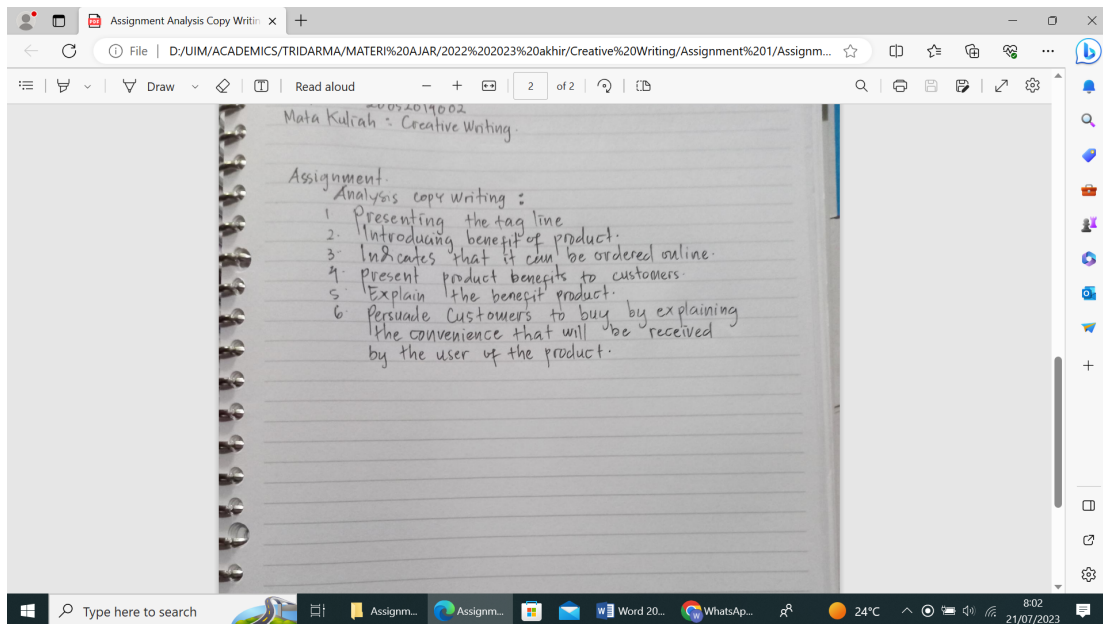 Assignment Analysis Copy Writin
File D:/UIM/ACADEMICS/TRIDARMA/MATERI%20AJAR/2022%202023%20akhir/Creative%20Writing/Assignment%201/Assignm...
Draw Read aloud 2 of 2
Mata Kuliah : Creative Writing.
Assignment.
Analysis copy writing :
1 Presenting the tag line
2. Introducing benefit of product.
3. Indicates that it can be ordered online.
4. Present product benefits to customers.
5. Explain the benefit product.
6. Persuade Customers to buy by explaining
the convenience that will be received
by the user of the product.
Type here to search Assignm... Assignm... Word 20... WhatsAp... 24°C 8:02
21/07/2023